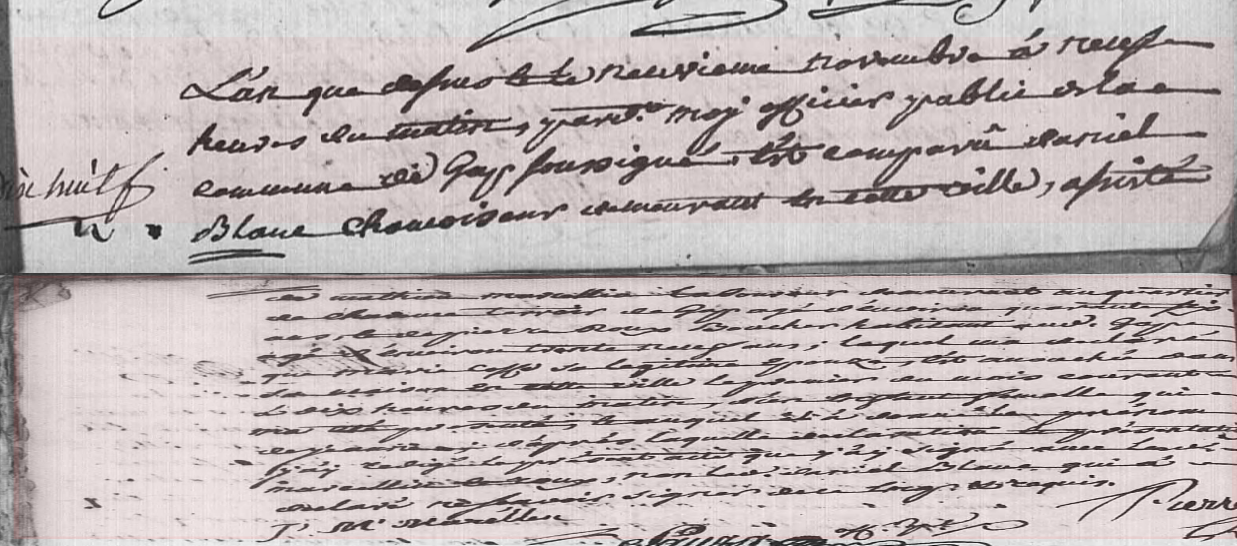 L'an que dessus & le neuvieme novembre à neuf
heures du matin, pard.t moy officier public de la
commune de Gap soussigné, est comparu daniel
dix huit
Blanc chamoiseur demeurant en cette ville, assisté
de mathieu marcellin laboureur demeurant au quartier
de terroir de Gap agé d'environ
et de pierre Roux Boucher habitant aud. Gap
agé d'environ trente neuf ans, lequel m'a déclaré
que marie sa legitime epouze, est accouchée dans
sa maison en cette ville le premier du mois courant
à dix heures du matin, d'un enfant femelle qui
m'a été presenté, & auquel il a donné le prénom
de ; d'après laquelle declaration & présentation
j'ay redigé le présent acte que j'ay signé avec lesd.
marcellin & roux, non led. daniel Blanc qui a
declaré ne savoir signer de ce enquis & requis.
Marcellin
Pierre